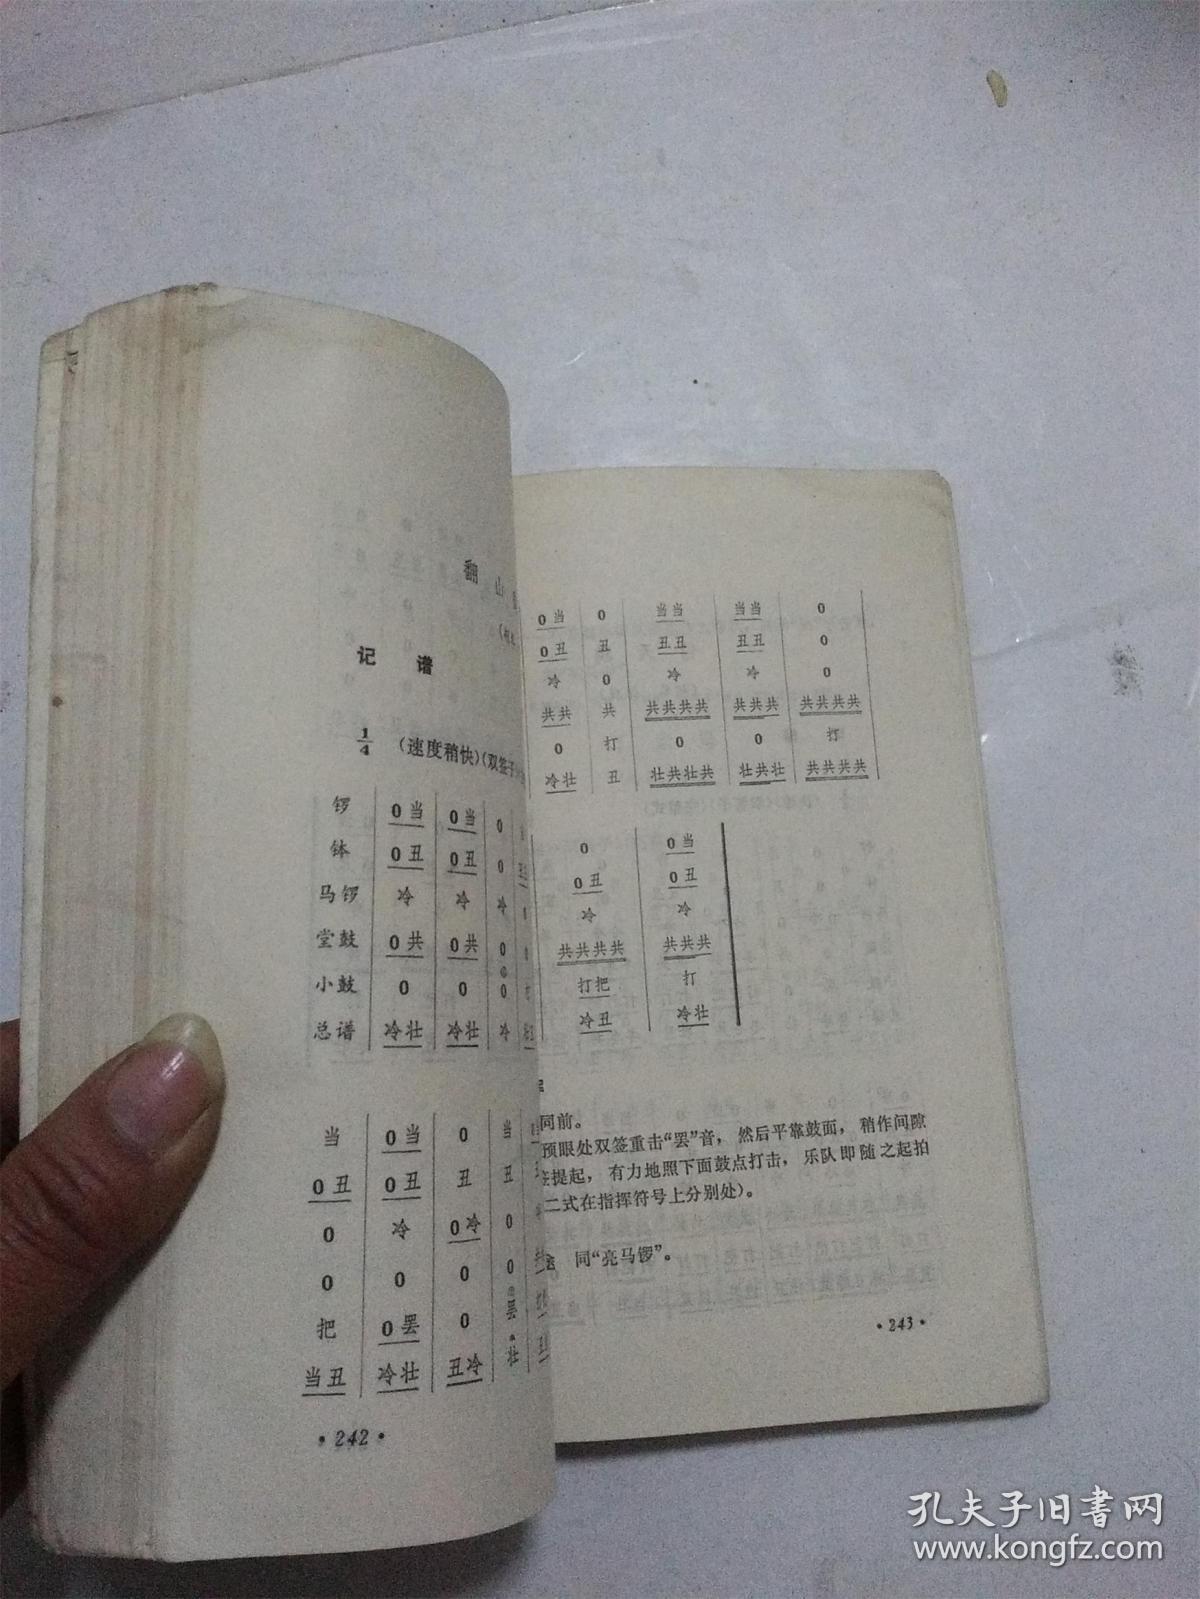 翻 山
记 谱
1/4 (速度稍快)(双签子
锣 0当 0当 0
钵 0丑 0丑 0
马锣 冷 冷 冷
堂鼓 0共 0共 0
小鼓 0 0 0
总谱 冷壮 冷壮 冷
当 0当 0 当
0丑 0丑 丑 丑
0 冷 0冷 0
0 0 0 0
把 0罢 0 罢
当丑 冷壮 丑冷 壮
·242·
0当 0 当当 当当 0
0丑 丑 丑丑 丑丑 0
冷 0 冷 冷 0
共共 共 共共共共 共共共 共共共共
0 打 0 0 打
冷壮 丑 壮共壮共 壮共壮 共共共共
0 0当
0丑 0丑
冷 冷
共共共共 共共共
打把 打
冷丑 冷壮
同前。
预眼处双签重击“罢”音，然后平靠鼓面，稍作间隙
提起，有力地照下面鼓点打击，乐队即随之起拍
二式在指挥符号上分别处)。
同“亮马锣”。
·243·
孔夫子旧书网
www.kongfz.com